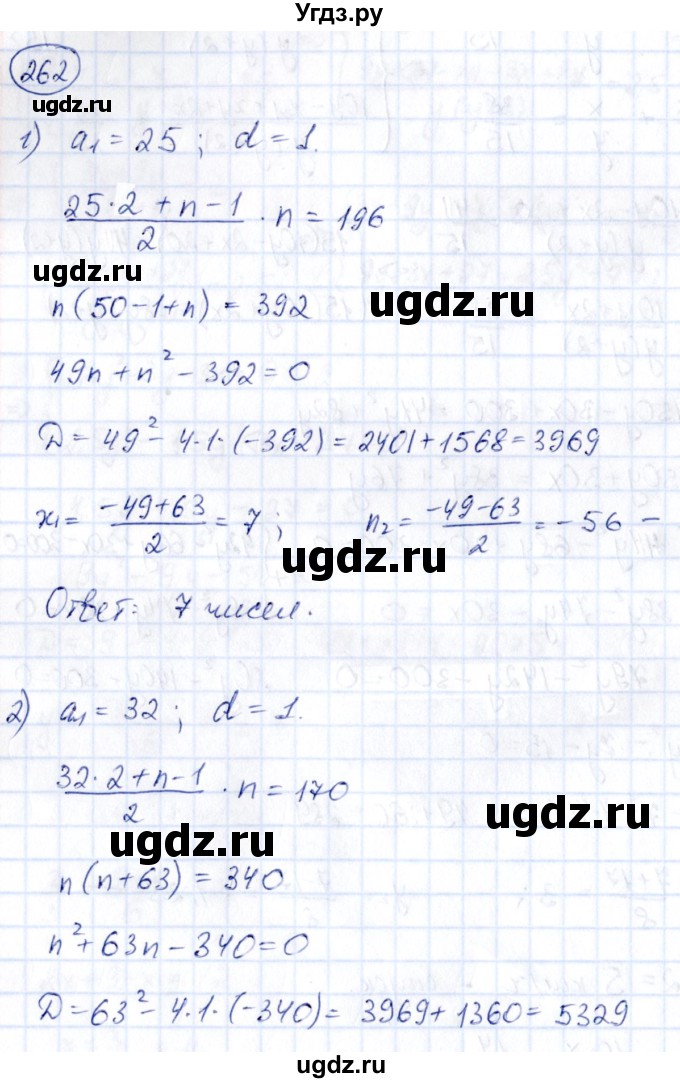 Угдз.ру
262
ugdz.ru
1) a₁ = 25 ; d = 1.
(25·2 + n − 1)/2 · n = 196
ugdz.ru
ugdz.ru
n(50 − 1 + n) = 392
49n + n² − 392 = 0
D = 49² − 4·1·(−392) = 2401 + 1568 = 3969
x₁ = (−49 + 63)/2 = 7 ; n₂ = (−49 − 63)/2 = −56 −
ugdz.ru
Ответ: 7 чисел.
2) a₁ = 32 ; d = 1.
(32·2 + n − 1)/2 · n = 170
ugdz.ru
ugdz.ru
n(n + 63) = 340
n² + 63n − 340 = 0
D = 63² − 4·1·(−340) = 3969 + 1360 = 5329
ugdz.ru